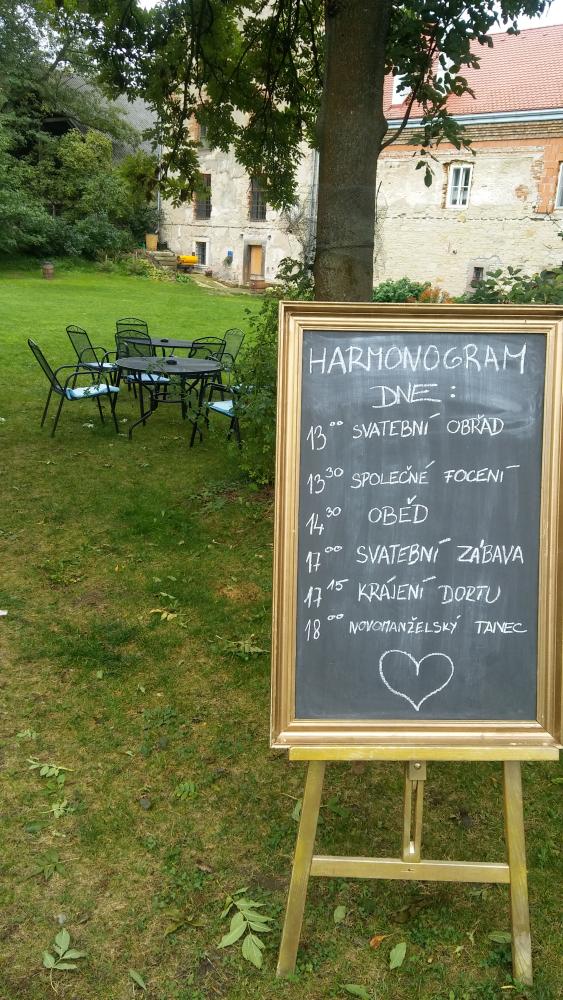 HARMONOGRAM
DNE:
13⁰⁰ SVATEBNÍ OBŘAD
13³⁰ SPOLEČNÉ FOCENÍ
14³⁰ OBĚD
17⁰⁰ SVATEBNÍ ZÁBAVA
17¹⁵ KRÁJENÍ DORTU
18⁰⁰ NOVOMANŽELSKÝ TANEC